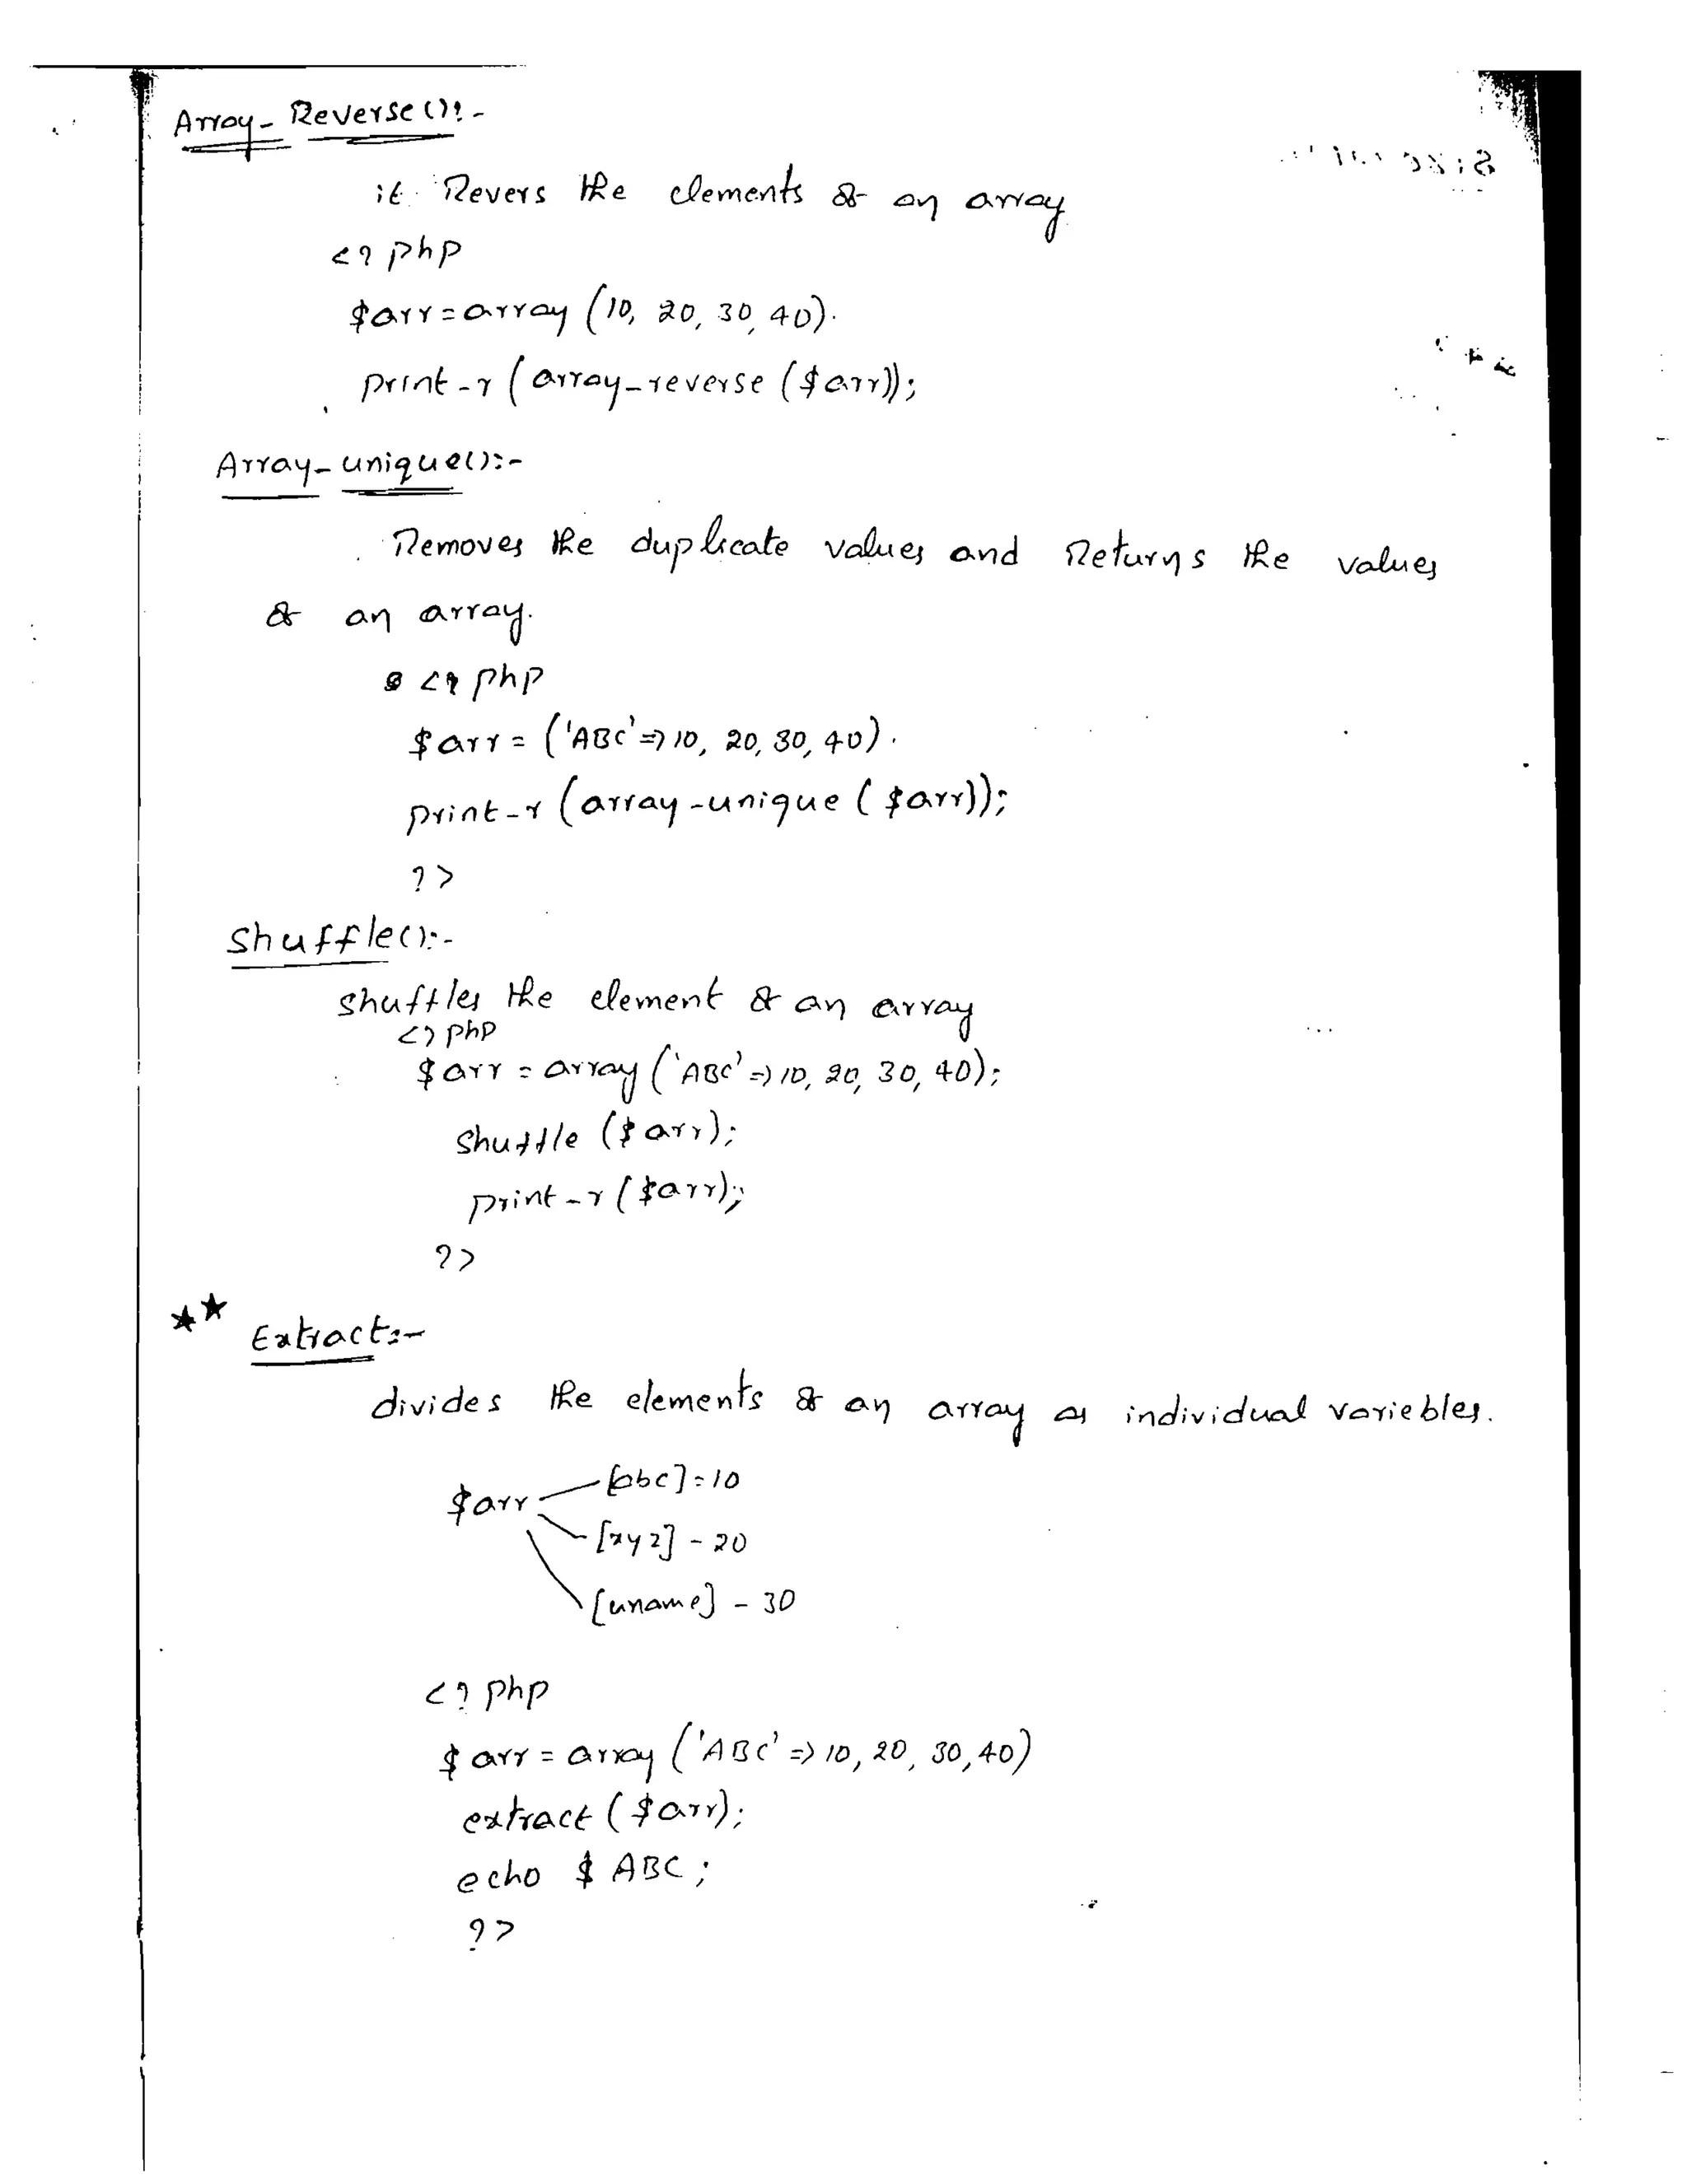 Array_Reverse():-
it Revers the elements of an array
<? php
$arr=array (10, 20, 30, 40).
print-r (array-reverse ($arr));
Array-unique():-
Removes the duplicate values and Returns the values
of an array.
<? php
$arr = ('ABC'=>10, 20, 30, 40).
print-r (array-unique ($arr));
?>
Shuffle():-
Shuffles the element of an array
<? php
$arr = array ('ABC'=>10, 20, 30, 40);
Shuffle ($arr);
print-r ($arr);
?>
★★ Extract:-
divides the elements of an array as individual variebles.
[abc]=10
$arr
[xyz] - 20
[uname] - 30
<? php
$arr = array ('ABC' => 10, 20, 30, 40)
extract ($arr);
echo $ABC;
?>